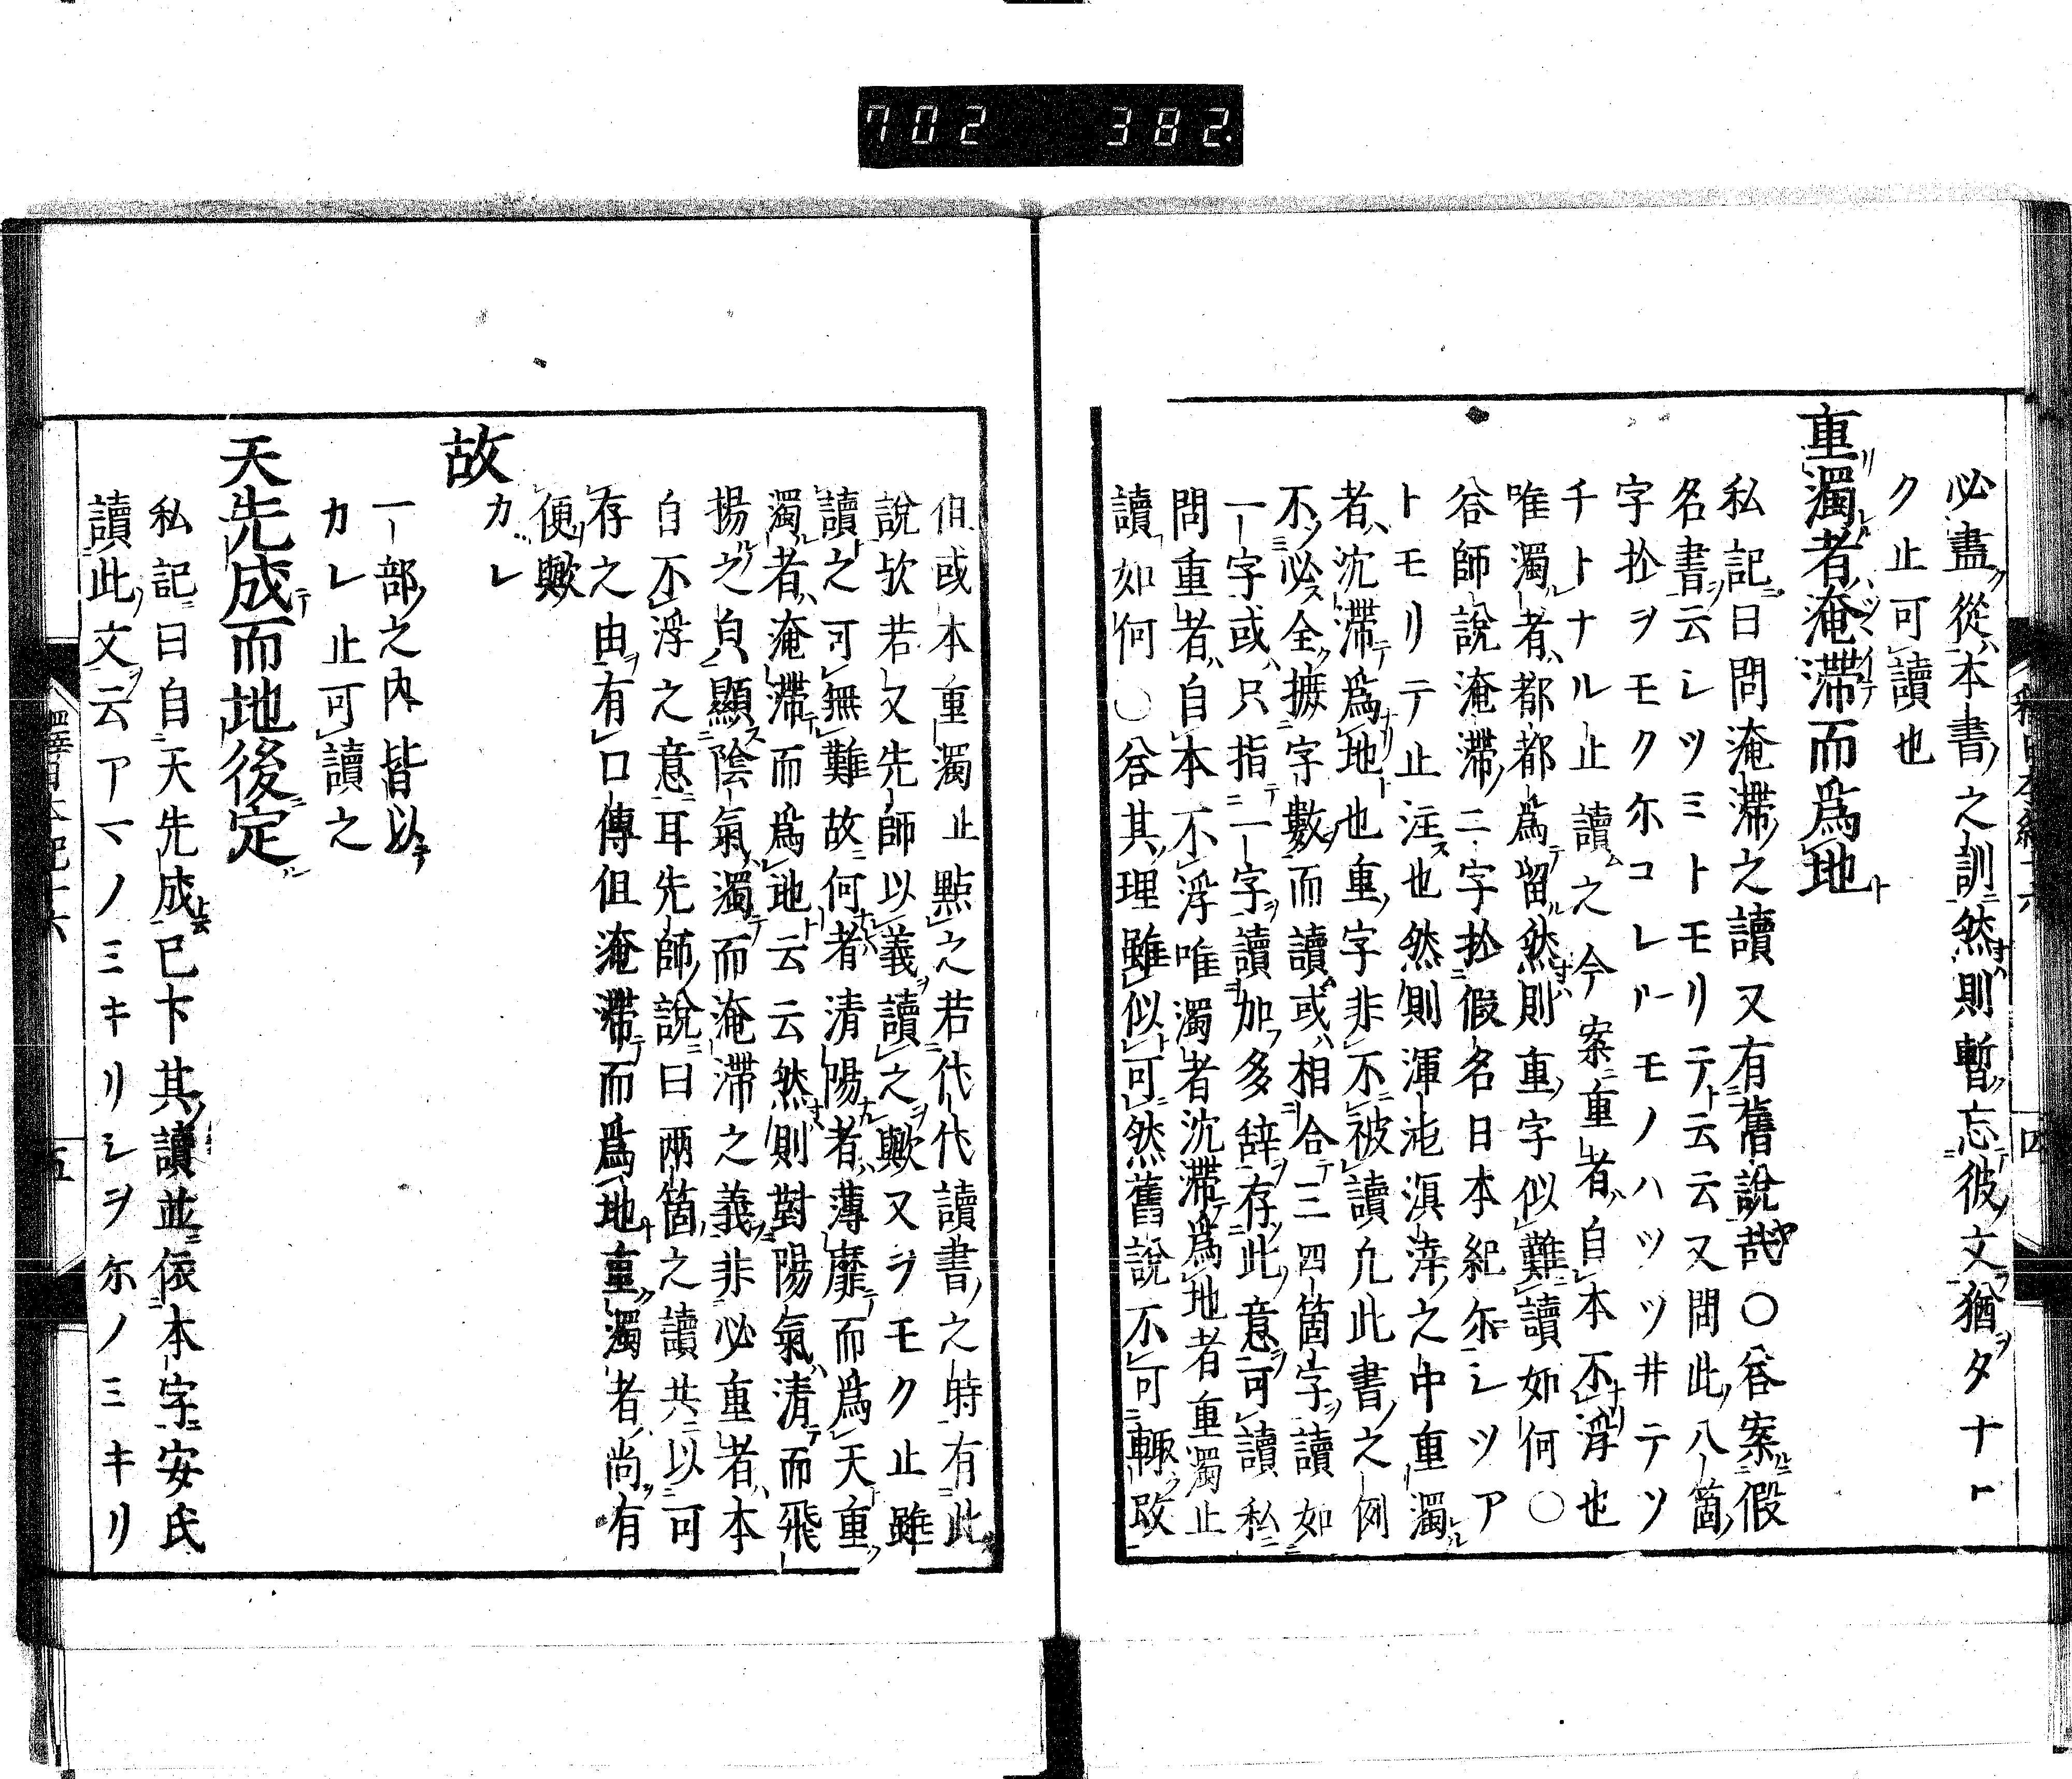 702 382
必盡從本書之訓然則暫忘彼文猶タナヒ
ク止可讀也
重濁者淹滯而爲地
私記曰問淹滯之讀又有舊說哉〇答案假
名書云シツミトモリテ云云又問此八箇
字抄ヲモクホコレルモノハツツヰテツ
チトナル止讀之今案重者自本不浮也
唯濁者都都爲留然則重字似難讀如何〇
答師說淹滯二字抄假名日本紀尓シツア
トモリテ止注也然則渾沌溟涬之中重濁
者沈滯爲地也重字非不被讀凢此書之例
不必全據字數而讀或相合三四箇字讀如
一字或只指一字讀加多辞存此意可讀私
問重者自本不浮唯濁者沈滯爲地者重濁止
讀如何〇答其理雖似可然舊說不可輙改
但或本重濁止點之若代代讀書之時有此
說欤若又先師以義讀之歟又ヲモク止雖
讀之可無難故何者清陽者薄靡而爲天重
濁者淹滯而爲地云云然則對陽氣清而飛
揚之自顯陰氣濁而淹滯之義非必重者本
自不浮之意耳先師說曰兩箇之讀共以可
存之由有口傳但淹滯而爲地重濁者尚有
便歟
故
カレ
一部之内皆以
カレ止可讀之
天先成而地後定
私記曰自天先成已下其讀並依本字安氏
讀此文云アマノミキリシヲホノミキリ